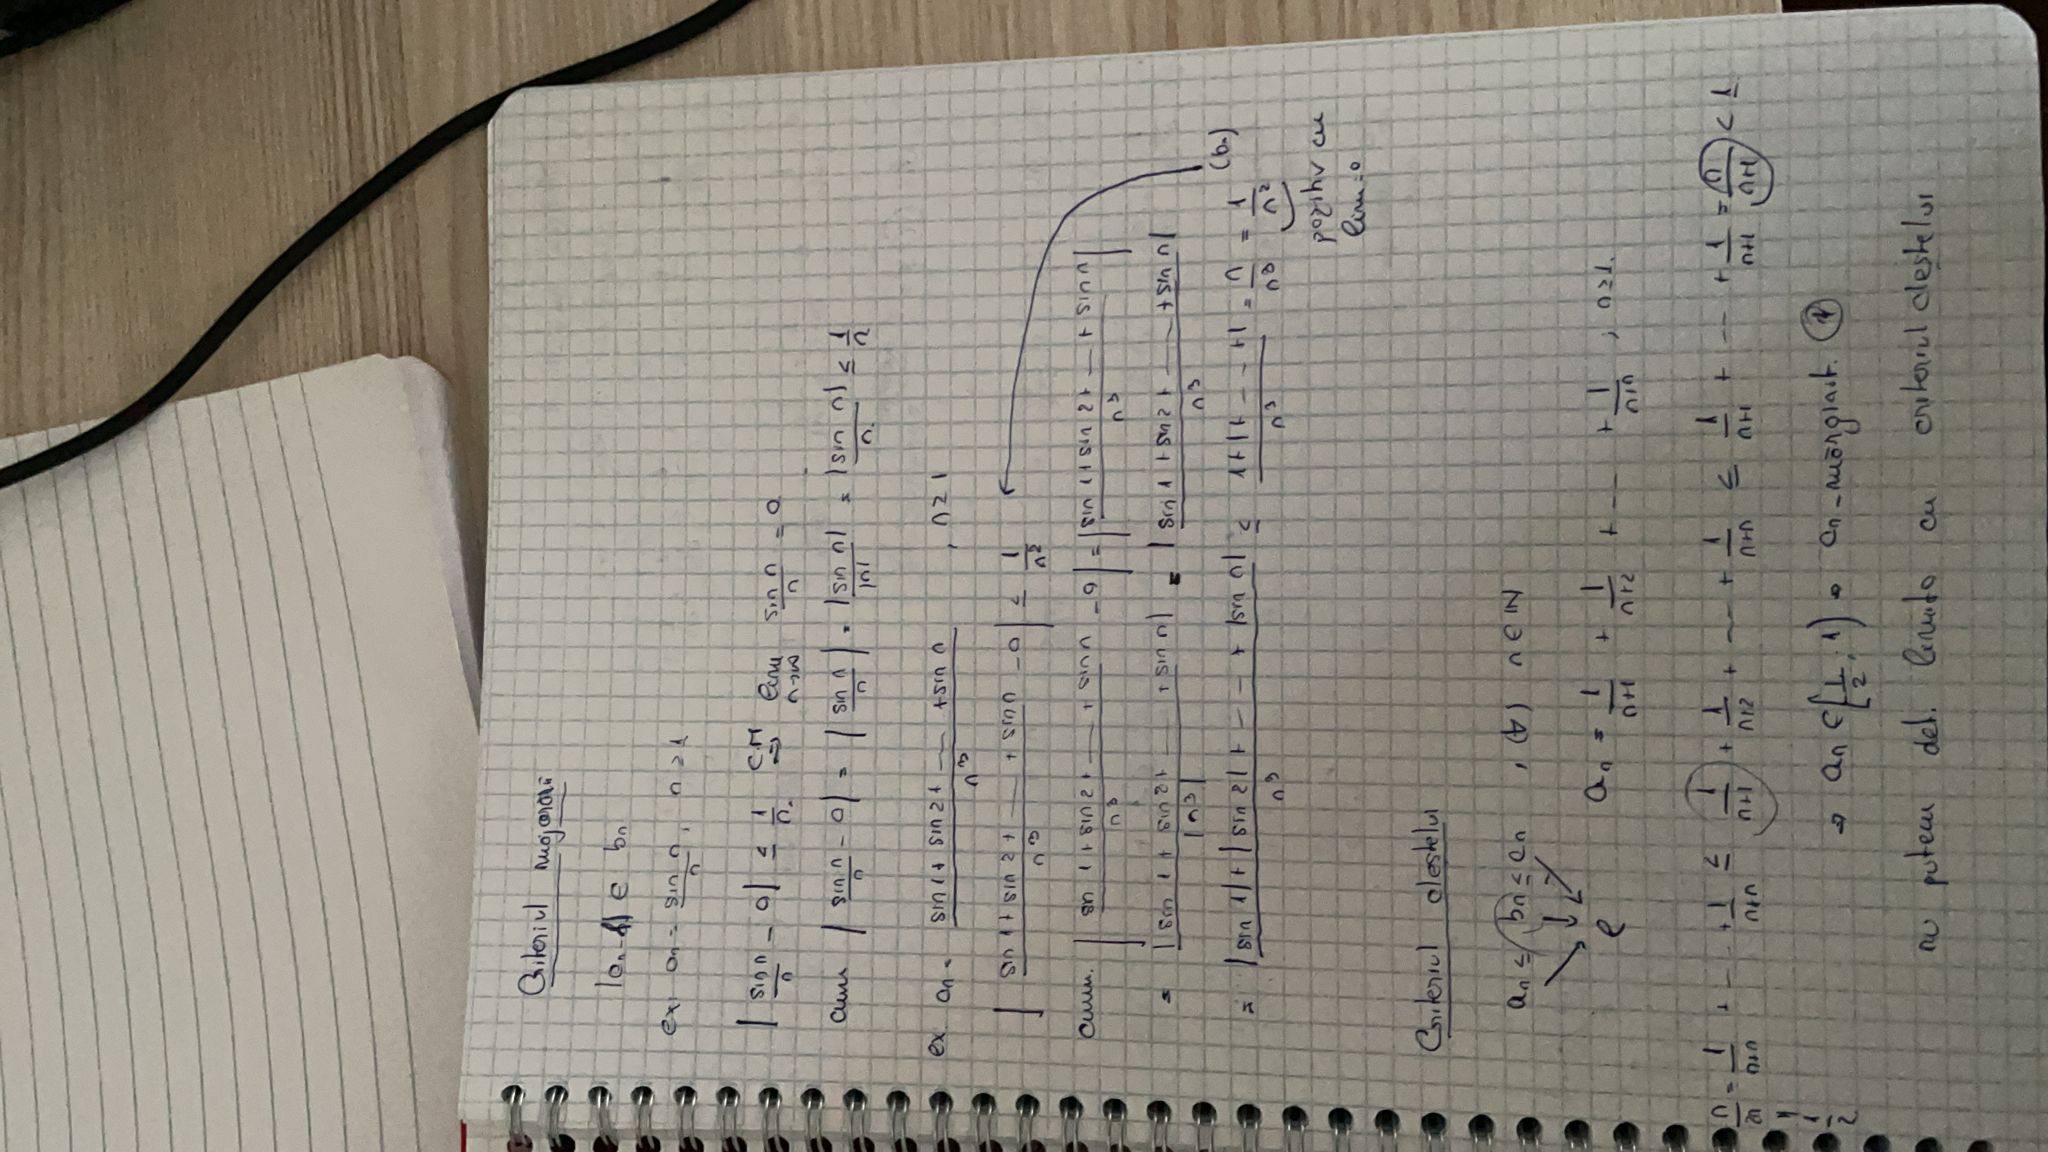 Criteriul majorării
|an - l| ≤ bn
ex: an = sin n / n, n ≥ 1
| sin n / n - 0 | ≤ 1/n. C.M ⇒ lim n→∞ sin n / n = 0
| sin n / n - 0 | = | sin n / n | = |sin n| / |n| = |sin n| / n. ≤ 1/n
ex an = sin 1 + sin 2 + --- + sin n / n³ , n ≥ 1
| sin 1 + sin 2 + --- + sin n / n³ - 0 | ≤ 1/n²
| sin 1 + sin 2 + --- + sin n / n³ - 0 | = | sin 1 + sin 2 + --- + sin n / n³ |
= |sin 1 + sin 2 + --- + sin n| / |n³| = |sin 1 + sin 2 + --- + sin n| / n³ (bn)
= |sin 1| + |sin 2| + --- + |sin n| / n³ ≤ 1+1+ --- +1 / n³ = n / n³ = 1/n²
pozitiv cu
lim=0
Criteriul cleștelui
an ≤ bn ≤ cn , (∀) n ∈ ℕ
l
an = 1/n+1 + 1/n+2 + --- + 1/n+n , n ≥ 1.
n/2n = 1/n+n + --- + 1/n+n ≤ 1/n+1 + 1/n+2 + --- + 1/n+n ≤ 1/n+1 + --- + 1/n+1 = n/n+1 < 1
1/2
⇒ an ∈ [1/2 ; 1) ⇒ an - mărginit.
nu putem det. limita cu criteriul cleștelui